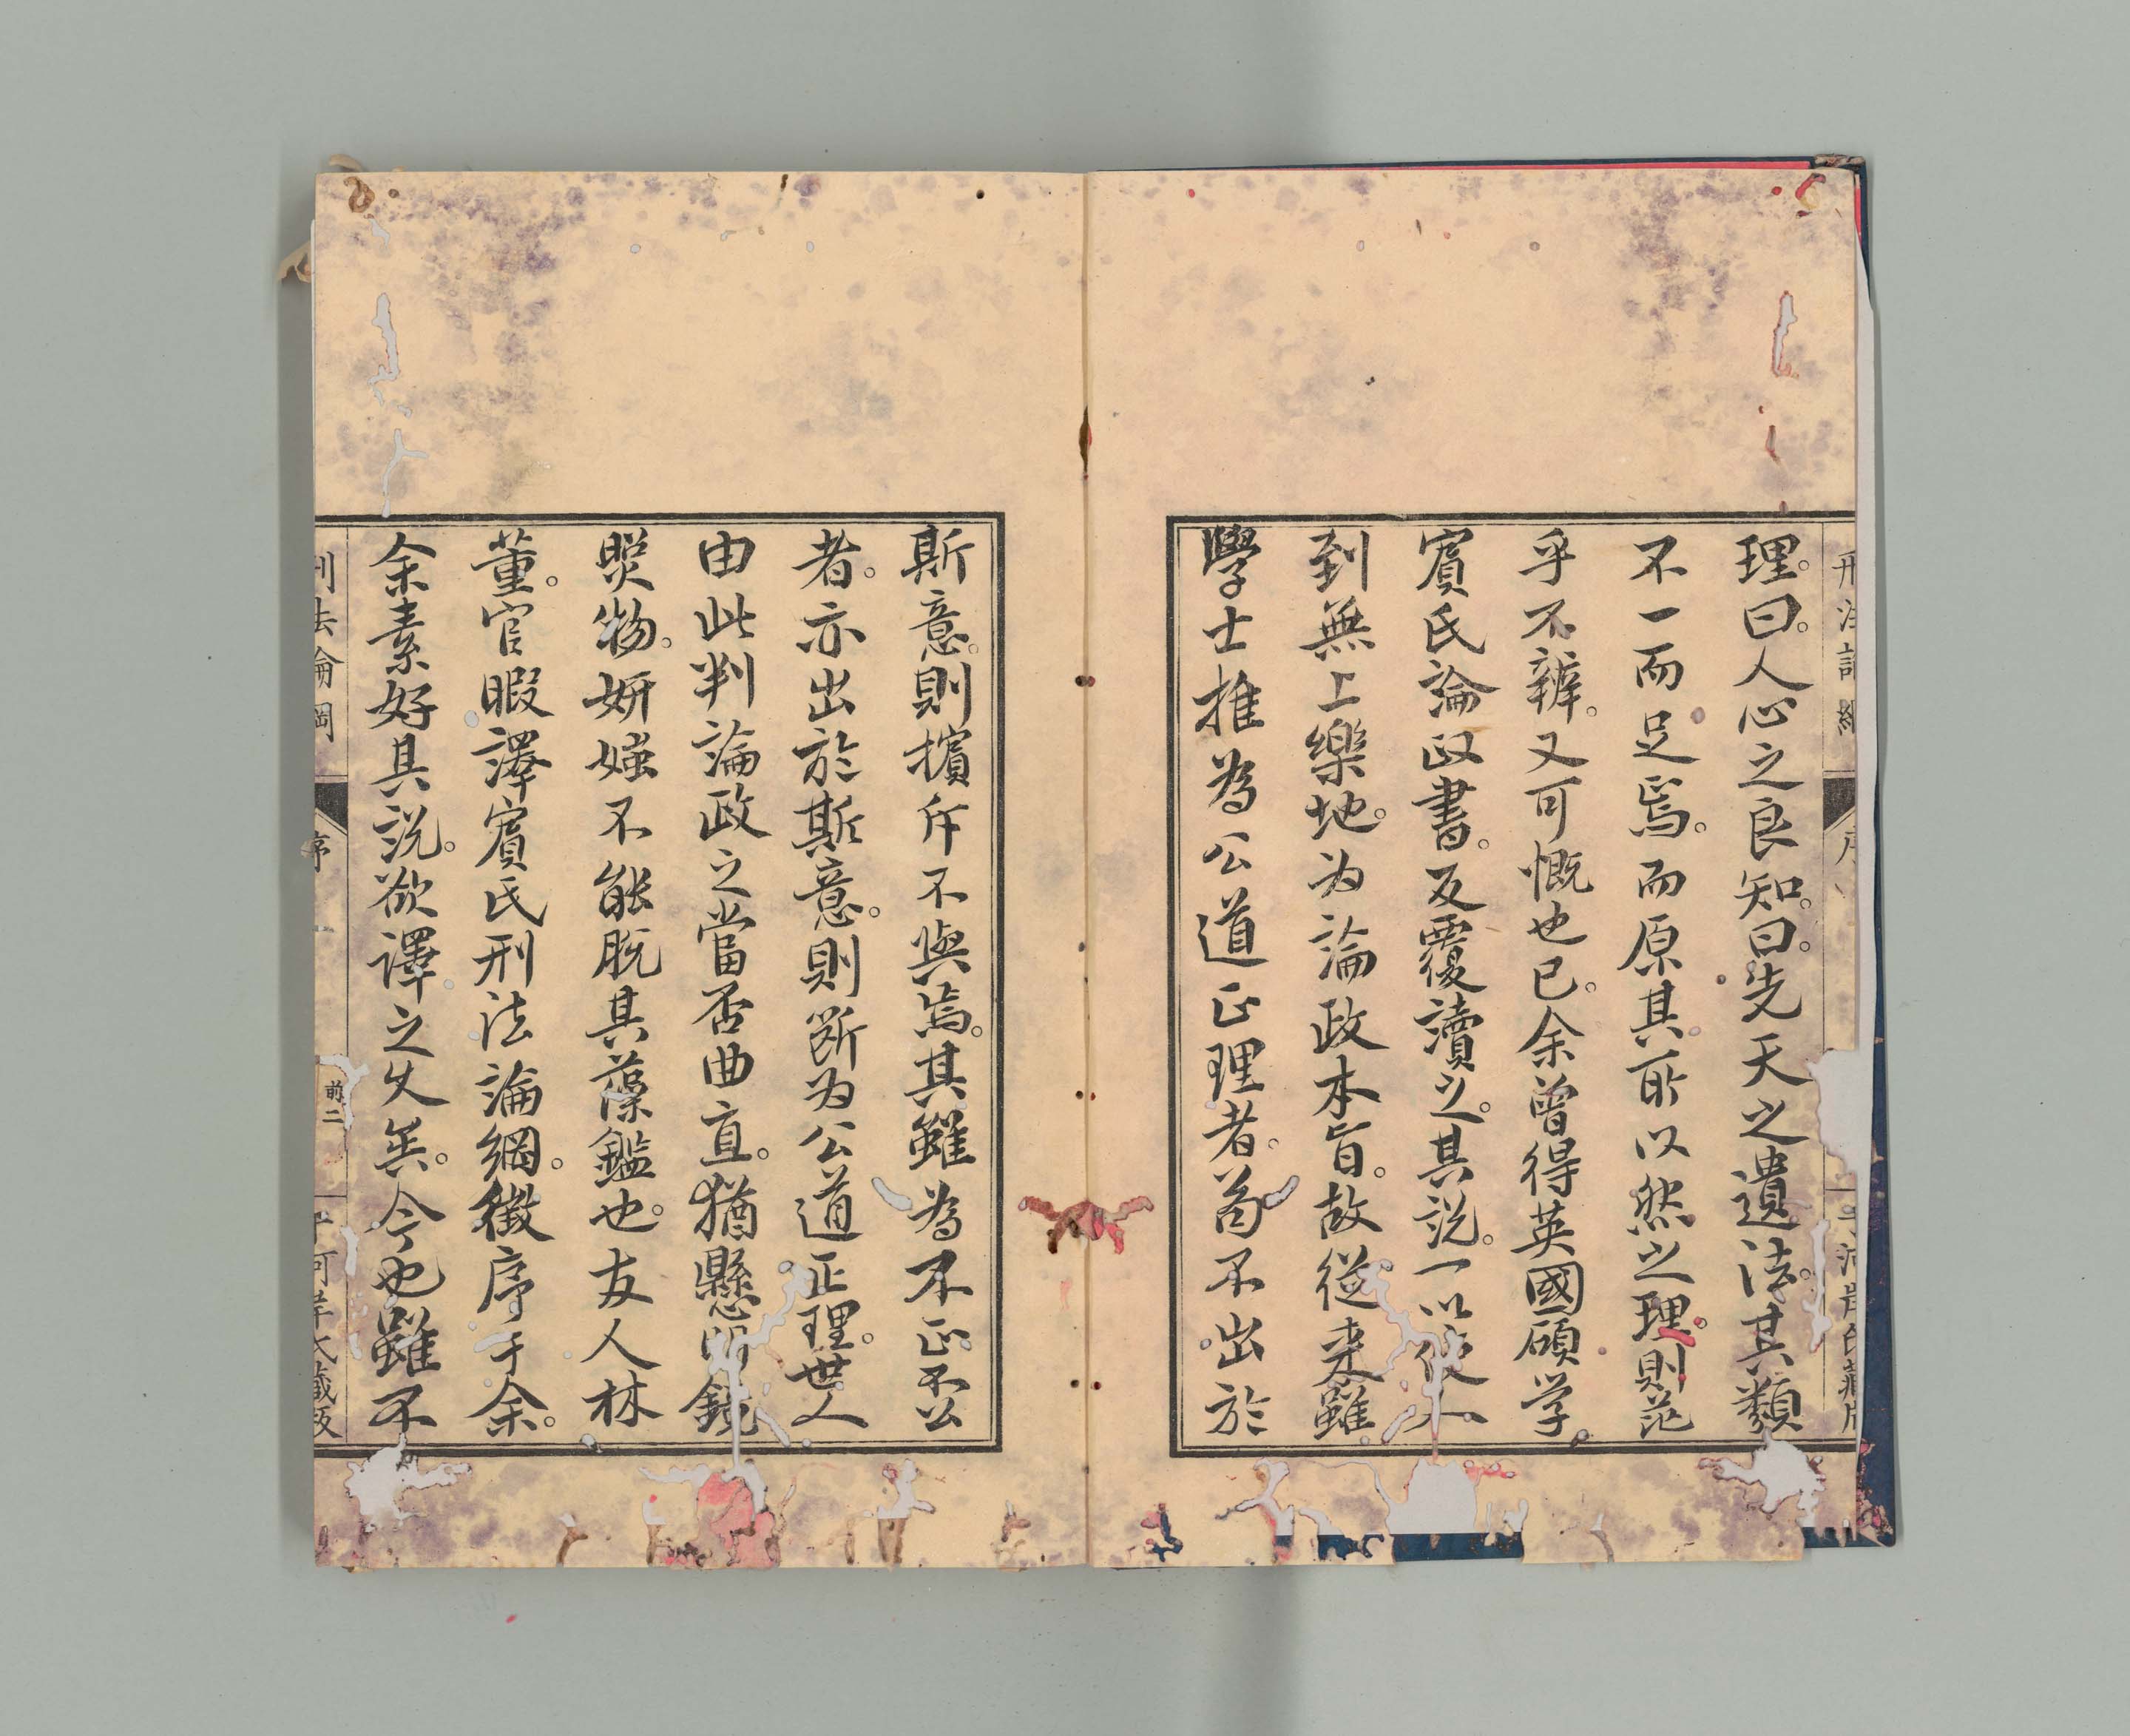 理。曰。人心之良知。曰。先天之遺法。其類
不一而足焉。而原其所以然之理。則茫
乎不辨。又可慨也已。余曽得英國碩学。
賔氏論政書。反覆讀之。其説。一以使人
到無上樂地。为論政本旨。故從来雖
學士推為公道正理者。苟不出於
斯意。則擯斥不與焉。其雖為不正不公
者。亦出於斯意。則断为公道正理。世人
由此判論政之當否曲直。猶懸明鏡
照物。妍媸不能脱其藻鑑也。友人林
董。官暇譯賔氏刑法論綱。徴序于余。
余素好其説。欲譯之久矣。今也雖不
刑法論綱
序
前二